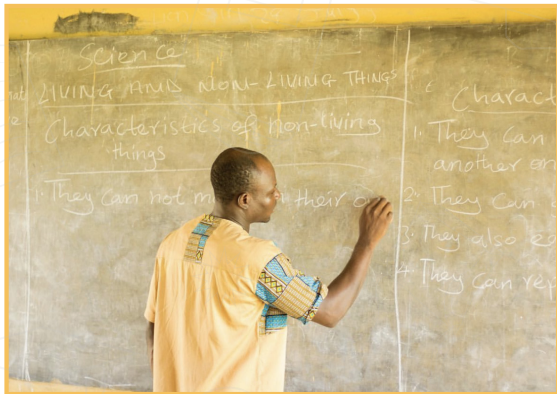 Science
LIVING AND NON-LIVING THINGS
Characteristics of non-living
things
1. They can not their
Charact
1. They can
another or
2. They can
3. They also
4. They can rep